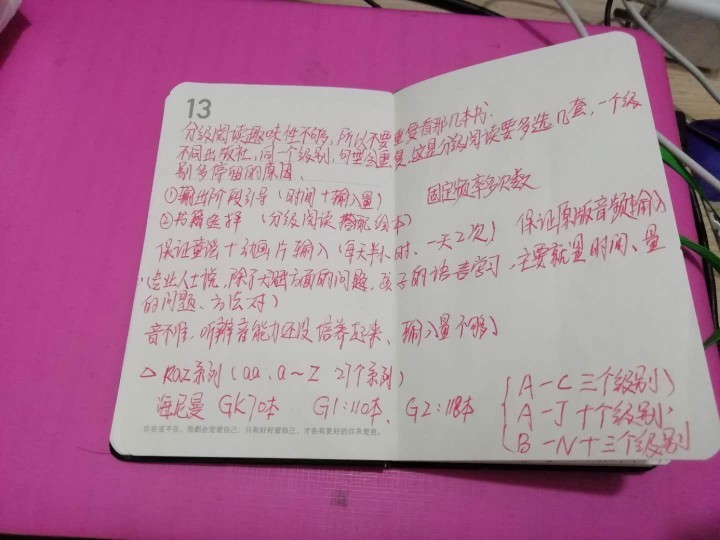 13
分级阅读趣味性不够,所以不要重复看那几本书.
不同出版社,同一个级别,句型会重复,这是分级阅读要多选几套,一个级
别多停留的原因、
①输出阶段引导(时间+输入量) 固定频率多次数
②书籍选择(分级阅读搭配绘本)
保证童谣+动画片输入(每天半小时、一天2次) 保证原版音频输入
·专业人士说,除了天赋方面的问题,孩子的语言学习,主要就是时间、量
的问题、方法对)
音不准,听辨音能力还没培养起来、输入量不够)
△ RAZ系列(aa、a~Z 27个系列)
海尼曼 GK70本 G1:110本、G2:118本
A-C 三个级别
A-J 十个级别
B-N十三个级别
你在或不在,我都会宠爱自己;只有好好爱自己,才会有更好的你来爱我。